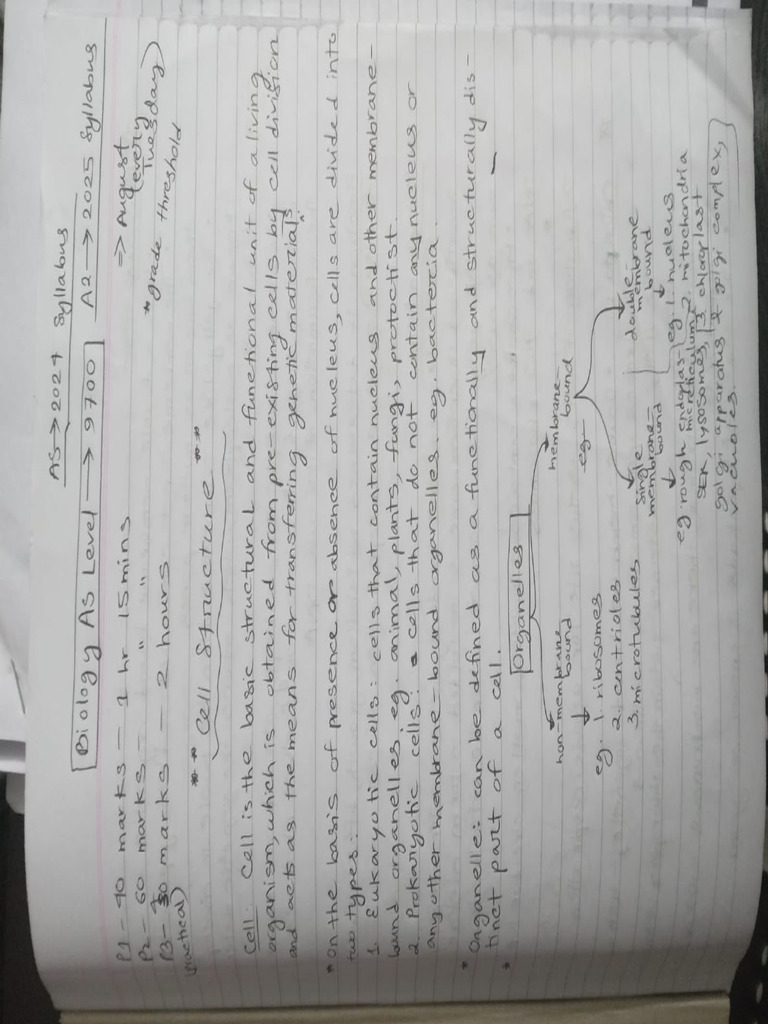 AS → 2024 syllabus
Biology AS Level → 9700 A2 → 2025 syllabus
P1 - 40 marks - 1 hr 15 mins => August
P2 - 60 marks - " " (every Tuesday)
P3 - 40 marks - 2 hours * grade threshold
(practical)
** Cell Structure **
Cell: Cell is the basic structural and functional unit of a living
organism, which is obtained from pre-existing cells by cell division
and acts as the means for transferring genetic materials.
* On the basis of presence or absence of nucleus, cells are divided into
two types:
1. Eukaryotic cells: cells that contain nucleus and other membrane-
bound organelles. eg. animal, plants, fungi, protoctist.
2. Prokaryotic cells: cells that do not contain any nucleus or
any other membrane-bound organelles. eg. bacteria.
* Organelle: can be defined as a functionally and structurally dis-
tinct part of a cell.
Organelles
non-membrane
bound
eg. 1. ribosomes
2. centrioles
3. microtubules
membrane-
bound
eg-
single
membrane-
bound
eg. rough endoplas-
mic reticulum,
SER, lysosomes,
golgi apparatus
vacuoles.
double-
membrane
bound
eg 1. nucleus
2. mitochondria
3. chloroplast
golgi complex,